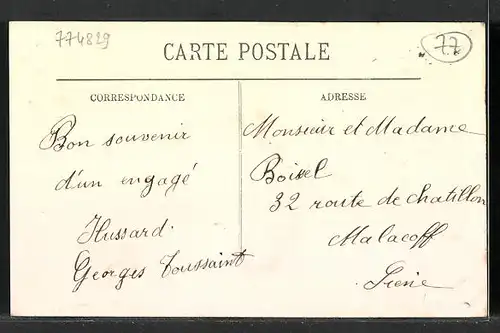 774829
77
CARTE POSTALE
CORRESPONDANCE
Bon souvenir
d'un engagé
Hussard.
Georges Toussaint
ADRESSE
Monsieur et Madame
Boisel
32 route de chatillon
Malacoff
Seine